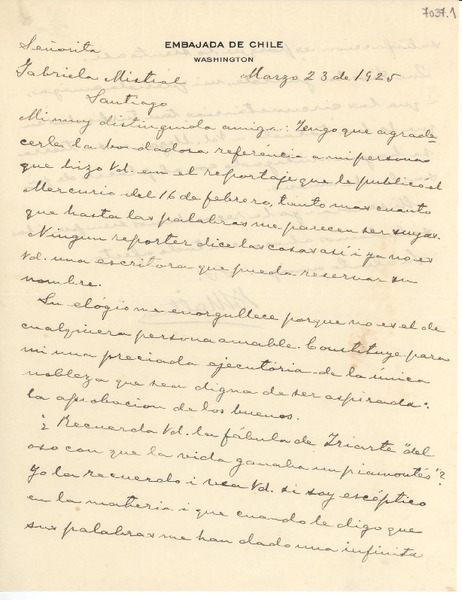 7037.1
EMBAJADA DE CHILE
WASHINGTON
Señorita
Gabriela Mistral Marzo 23 de 1925
Santiago
Mi muy distinguida amiga: Tengo que agrade-
cerle la bondadosa referéncia a mi persona
que hizo Vd. en el reportaje que le publicó el
Mercurio del 16 de febrero, tanto mas cuanto
que hasta las palabras me parecen ser suyas.
Ningun reporter dice las cosas asi i ya no es
Vd. una escritora que pueda reservar su
nombre.
Su elógio me enorgullece porque no es el de
cualquiera persona amable. Constituye para
mi una preciada ejecutória de la única
nobleza que sea digna de ser aspirada:
la aprobacion de los buenos.
¿Recuerda Vd. la fábula de Iriarte "del
oso con que la vida ganaba un piamontés"?
Yo la recuerdo i vea Vd. si soy escéptico
en la matéria i que cuando le digo que
sus palabras me han dado una infinita